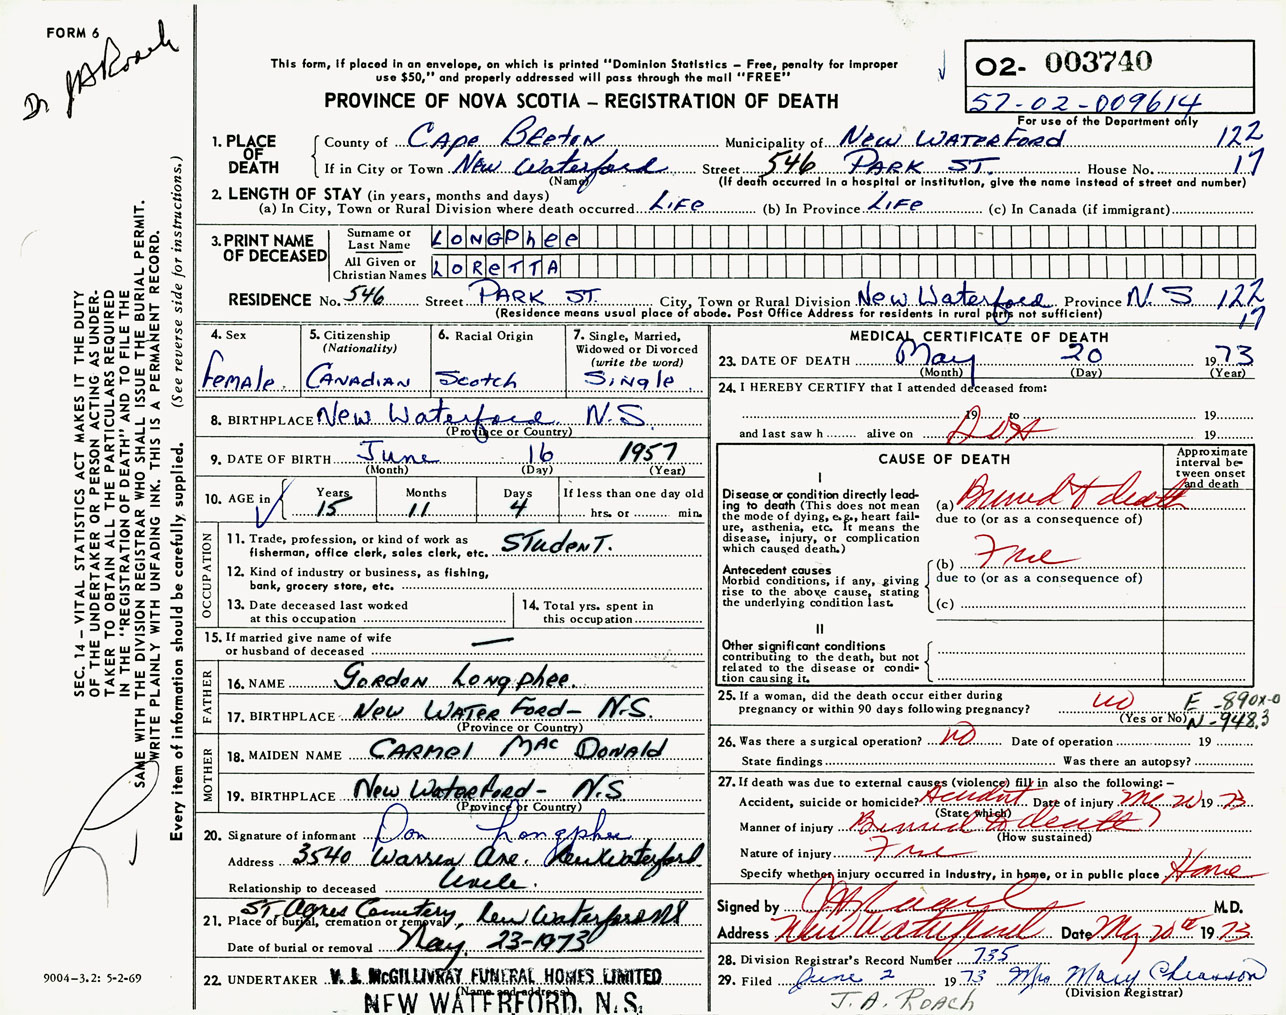 FORM 6
Dr JA Roach
This form, if placed in an envelope, on which is printed "Dominion Statistics – Free, penalty for improper
use $50," and properly addressed will pass through the mail "FREE"
PROVINCE OF NOVA SCOTIA – REGISTRATION OF DEATH
02- 003740
57-02-009614
For use of the Department only
1. PLACE OF DEATH
County of Cape Breton Municipality of New Waterford 122
If in City or Town New Waterford Street 546 Park St. House No. 17
(Name) (If death occurred in a hospital or institution, give the name instead of street and number)
2. LENGTH OF STAY (in years, months and days)
(a) In City, Town or Rural Division where death occurred Life (b) In Province Life (c) In Canada (if immigrant)
3. PRINT NAME OF DECEASED
Surname or Last Name LONGPhee
All Given or Christian Names LOReTTA
RESIDENCE No. 546 Street Park St. City, Town or Rural Division New Waterford Province N.S 122
(Residence means usual place of abode. Post Office Address for residents in rural parts not sufficient) 17
4. Sex
Female
5. Citizenship
(Nationality)
Canadian
6. Racial Origin
Scotch
7. Single, Married,
Widowed or Divorced
(write the word)
Single
8. BIRTHPLACE New Waterford N.S.
(Province or Country)
9. DATE OF BIRTH June 16 1957
(Month) (Day) (Year)
10. AGE in
Years Months Days If less than one day old
15 11 4 hrs. or min.
OCCUPATION
11. Trade, profession, or kind of work as
fisherman, office clerk, sales clerk, etc. Student.
12. Kind of industry or business, as fishing,
bank, grocery store, etc.
13. Date deceased last worked
at this occupation
14. Total yrs. spent in
this occupation
15. If married give name of wife
or husband of deceased —
FATHER
16. NAME Gordon Longphee.
17. BIRTHPLACE New Water Ford – N.S.
(Province or Country)
MOTHER
18. MAIDEN NAME Carmel Mac Donald
19. BIRTHPLACE New Waterford – N.S
(Province or Country)
20. Signature of informant Don Longphee
Address 3540 Warren Ave. New Waterford
Relationship to deceased Uncle.
21. Place of burial, cremation or removal St Agnes Cemetery, New Waterford NS
Date of burial or removal May 23-1973
22. UNDERTAKER V. J. McGILLIVRAY FUNERAL HOMES LIMITED
(Name and address)
NEW WATERFORD, N.S.
MEDICAL CERTIFICATE OF DEATH
23. DATE OF DEATH May 20 1973
(Month) (Day) (Year)
24. I HEREBY CERTIFY that I attended deceased from:
19 to 19
and last saw h alive on DOA 19
CAUSE OF DEATH
Approximate interval between onset and death
I
Disease or condition directly leading to death (This does not mean
the mode of dying, e.g., heart failure, asthenia, etc. It means the
disease, injury, or complication
which caused death.)
(a) Burned to death
due to (or as a consequence of)
Antecedent causes
Morbid conditions, if any, giving
rise to the above cause, stating
the underlying condition last.
(b) Fire
due to (or as a consequence of)
(c)
II
Other significant conditions
contributing to the death, but not
related to the disease or condition causing it.
25. If a woman, did the death occur either during
pregnancy or within 90 days following pregnancy? no
(Yes or No)
E -890x-0
N -948.3
26. Was there a surgical operation? no Date of operation 19
State findings Was there an autopsy?
27. If death was due to external causes (violence) fill in also the following: –
Accident, suicide or homicide? Accident Date of injury May 20 1973
(State which)
Manner of injury Burned to death
(How sustained)
Nature of injury Fire
Specify whether injury occurred in industry, in home, or in public place Home
Signed by M.D.
Address New Waterford Date May 20th 1973
28. Division Registrar's Record Number 735
29. Filed June 2 1973 Mrs Mary Chiasson
(Division Registrar)
J.A. ROACH
SEC. 14 – VITAL STATISTICS ACT MAKES IT THE DUTY
OF THE UNDERTAKER OR PERSON ACTING AS UNDER-
TAKER TO OBTAIN ALL THE PARTICULARS REQUIRED
IN THE "REGISTRATION OF DEATH" AND TO FILE THE
SAME WITH THE DIVISION REGISTRAR WHO SHALL ISSUE THE BURIAL PERMIT.
WRITE PLAINLY WITH UNFADING INK. THIS IS A PERMANENT RECORD.
Every item of information should be carefully supplied. (See reverse side for instructions.)
9004-3.2: 5-2-69